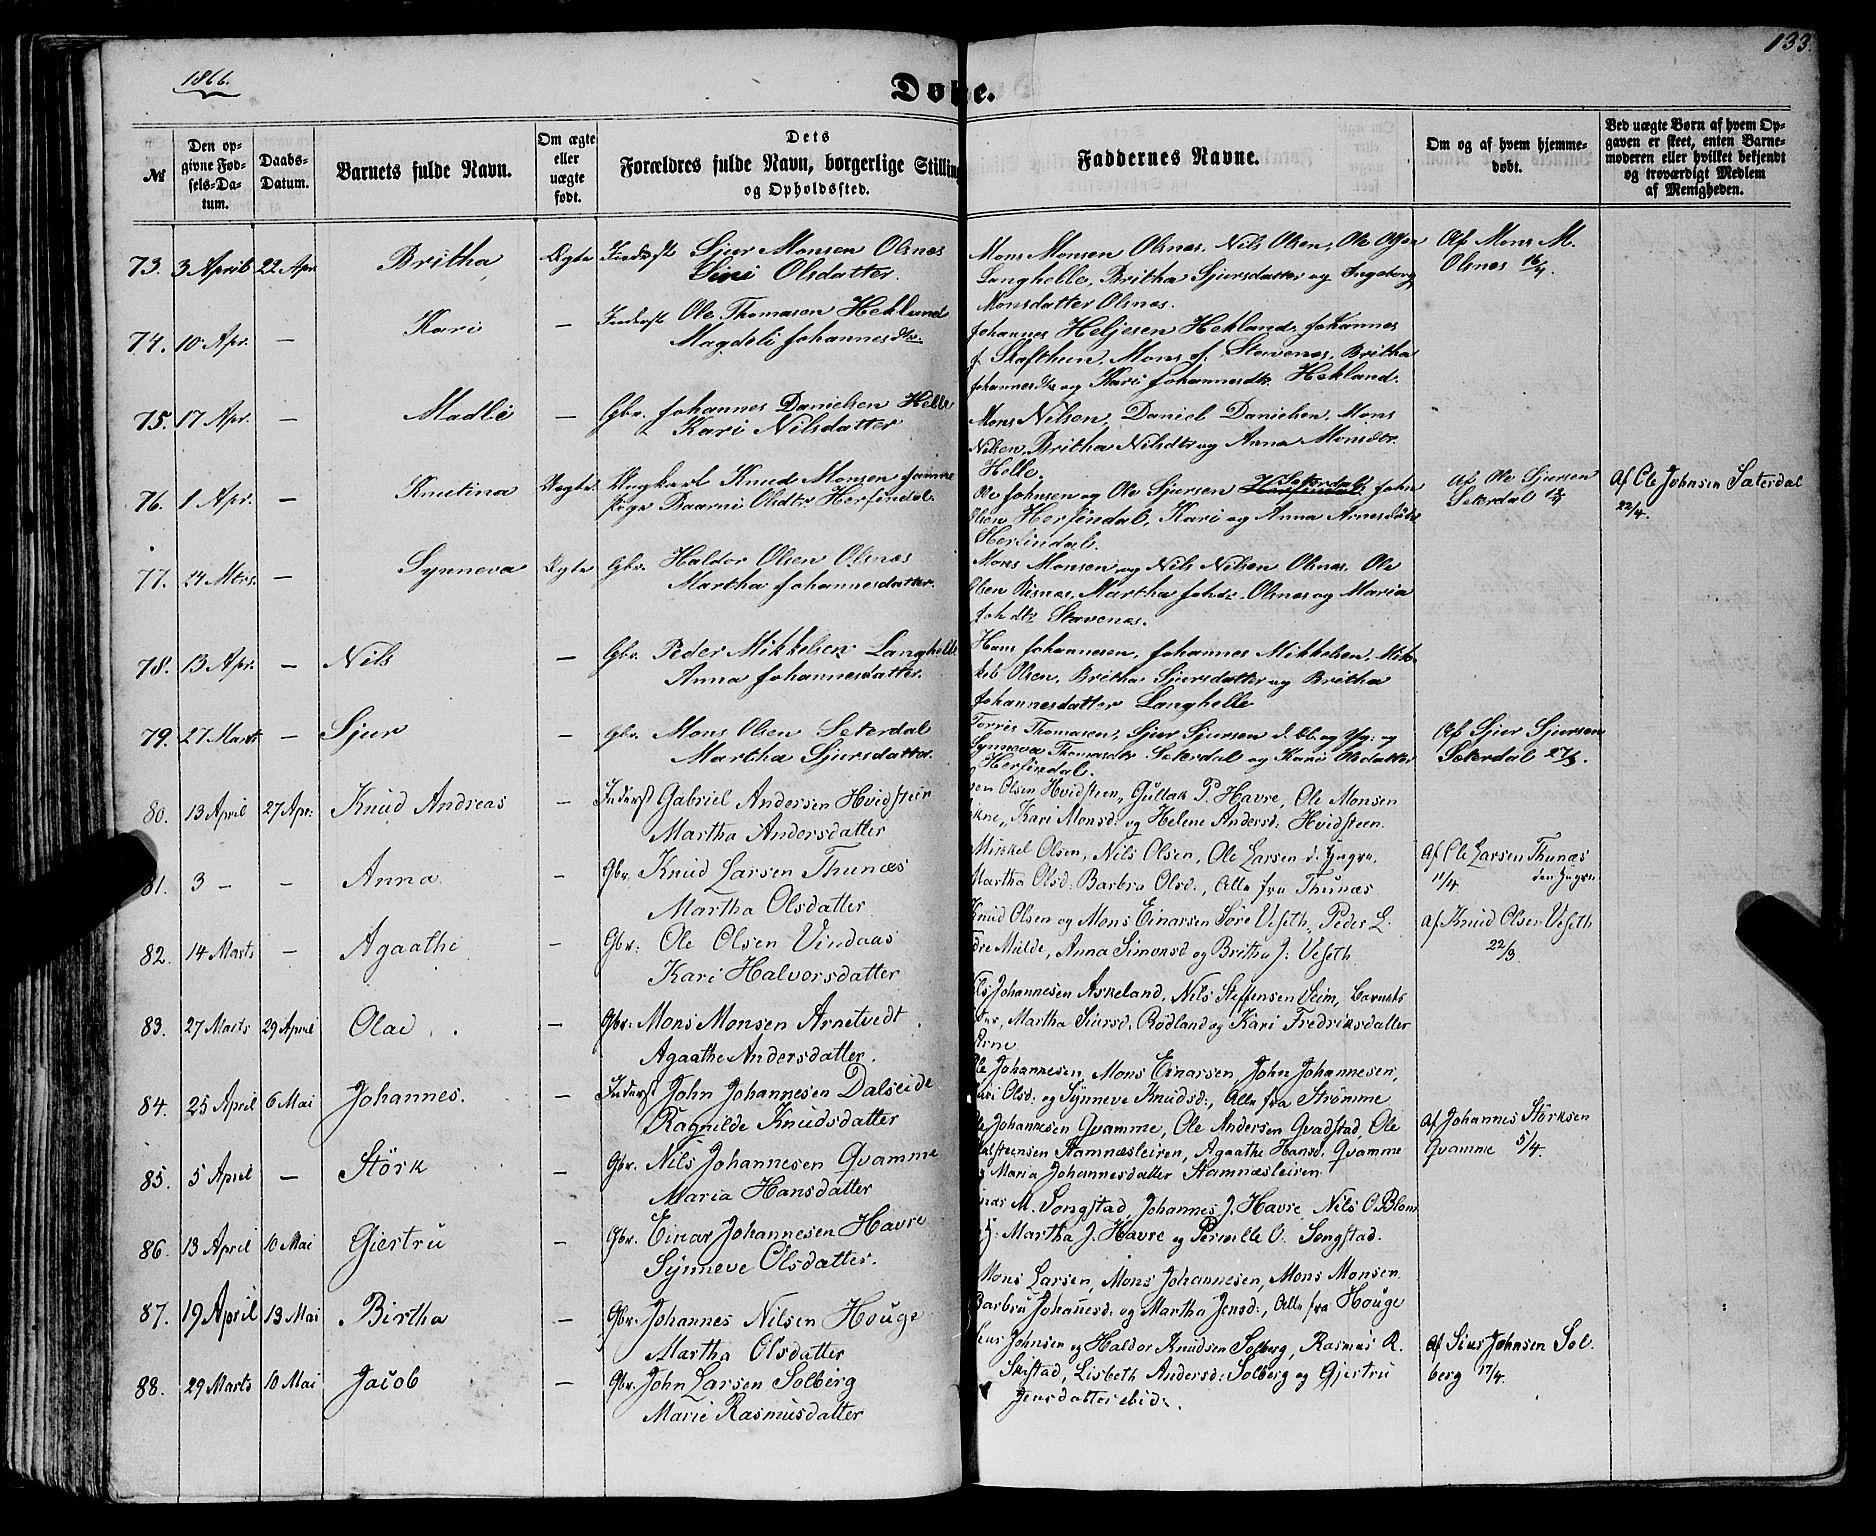 1866.
133.
Døbte.
№
Den opgivne Fødsels-Datum.
Daabs-Datum.
Barnets fulde Navn.
Om ægte eller uægte født.
Dets Forældres fulde Navn, borgerlige Stilling og Opholdssted.
Faddernes Navne.
Om og af hvem hjemmedøbt.
Ved uægte Børn af hvem Opgaven er skeet, enten Barnemoderen eller hvilket bekjendt og troværdigt Medlem af Menigheden.
73. 3 April 22 Apr. Britha Ægte Inderst Sjur Monsen Olsnes
Siri Olsdatter.
Mons Monsen Olsnes, Nils Olsen, Ole
Langhelle, Britha Sjursdatter og Ingeborg
Monsdatter Olsnes.
Af Mons M.
Olsnes 16/4.
74. 10 Apr. — Kari — Inderst Ole Thomasen Hekland
Magdeli Johannesdtr.
Johannes Heljesen Hekland, Johannes
J. Skafthun, Mons J. Stavenes, Britha
Johannesdtr og Kari Johannesdtr. Hekland.
75. 17 Apr. — Madli — Gbr. Johannes Danielsen Helle
Kari Nilsdatter
Mons Nilsen, Daniel Danielsen, Mons
Nilsen, Britha Nilsdtr og Anna Monsdtr.
Helle.
76. 1 Apr. — Knutina Uægte Ungkarl Knud Monsen
Pige Baarni Olsdtr. Herfindal.
Ole Johnsen og Ole Sjursen Seterdal, John
Olsen Herfindal, Kari og Anna
Herfindal.
Af Ole Sjursen
Seterdal
Af Ole Johnsen Sæterdal
22/4.
77. 24 Mrts. — Synneva Ægte Gbr. Haldor Olsen Olsnes
Martha Johannesdatter.
Mons Monsen og Nils Nilsen Olsnes, Ole
Olsen Risnes, Martha Johdtr. Olsnes og Maria
Johdtr Stavenes.
78. 13 Apr. — Nils — Gbr. Peder Mikkelsen Langhelle
Anna Johannesdatter.
Hans Johannesen, Johannes Mikkelsen, Mik-
kel Olsen, Britha Sjursdatter og Britha
Johannesdatter Langhelle
79. 27 Marts — Sjur — Gbr. Mons Olsen Seterdal
Martha Sjursdatter.
Torris Thomasen, Sjur Sjursen d. Æl. og Yg. og
Synneva Thomasdtr Seterdal og Kari Olsdatter
Herfindal.
Af Sjur Sjursen
Seterdal 27/3.
80. 13 April 27 Apr: Knud Andreas — Inderst Gabriel Andersen Hvidsteen
Martha Andersdatter
Olsen Hvidsteen, Gullak P. Havre, Ole Monsen
Kari Monsd: og Helene Andersd: Hvidsteen.
81. 3 — — Anna — Gbr. Knud Larsen Thunæs
Martha Olsdatter.
Mikkel Olsen, Nils Olsen, Ole Larsen d. Yngre,
Martha Olsd: Barbra Olsd:, Alle fra Thunæs
Af Ole Larsen Thunæs
11/4. den Yngre
82. 14 Marts — Agaathe — Gbr: Ole Olsen Vindaas
Kari Halvorsdatter
Knud Olsen og Mons Einarsen Søre Veseth, Peder L.
Midre Milde, Anna Simonsd og Britha J: Veseth.
Af Knud Olsen Veseth
22/3.
83. 27 Marts 29 April Olai — Gbr: Mons Monsen Arnetvedt
Agaathe Andersdatter.
Nils Johannesen Askeland, Nils Steffensen Seim, Barnets
Martha Siursd: Rødland og Kari Fredriksdatter
Arne.
84. 25 April 6 Mai Johannes. — Inderst John Johannesen Dalseide
Ragnilde Knudsdatter
Ole Johannesen, Mons Einarsen, John Johannesen,
Kari Olsd: og Synneve Knudsd:, Alle fra Strømme
85. 5 April — Störk — Gbr. Nils Johannesen Qvamme
Maria Hansdatter
Ole Johannesen Qvamme, Ole Andersen Qvadstad, Ole
Stamnæsleiren, Agaathe Hansd: Qvamme
og Maria Johannesdatter Stamnæsleiren
Af Johannes Störksen
Qvamme 5/4.
86. 13 April 10 Mai Giertru — Gbr. Einar Johannesen Havre
Synneve Olsdatter.
M. Songstad, Johannes J. Havre, Nils O. Blom
Martha J. Havre og Pernille O. Songstad.
87. 19 April 13 Mai Birtha — Gbr. Johannes Nilsen Houge
Martha Olsdatter
Mons Larsen, Mons Johannesen, Mons Monsen
Barbru Johanesd: og Martha Jensd:, Alle fra Houge
88. 29 Marts 10 Mai Jacob — Gbr. John Larsen Solberg
Marie Rasmusdatter
Johnsen og Haldor Knudsen Solberg, Rasmus R.
Skistad, Lisbeth Andersd: Solberg og Gjertru
Jensdatter ibid:.
Af Sius Johnsen Sol-
berg 17/4.